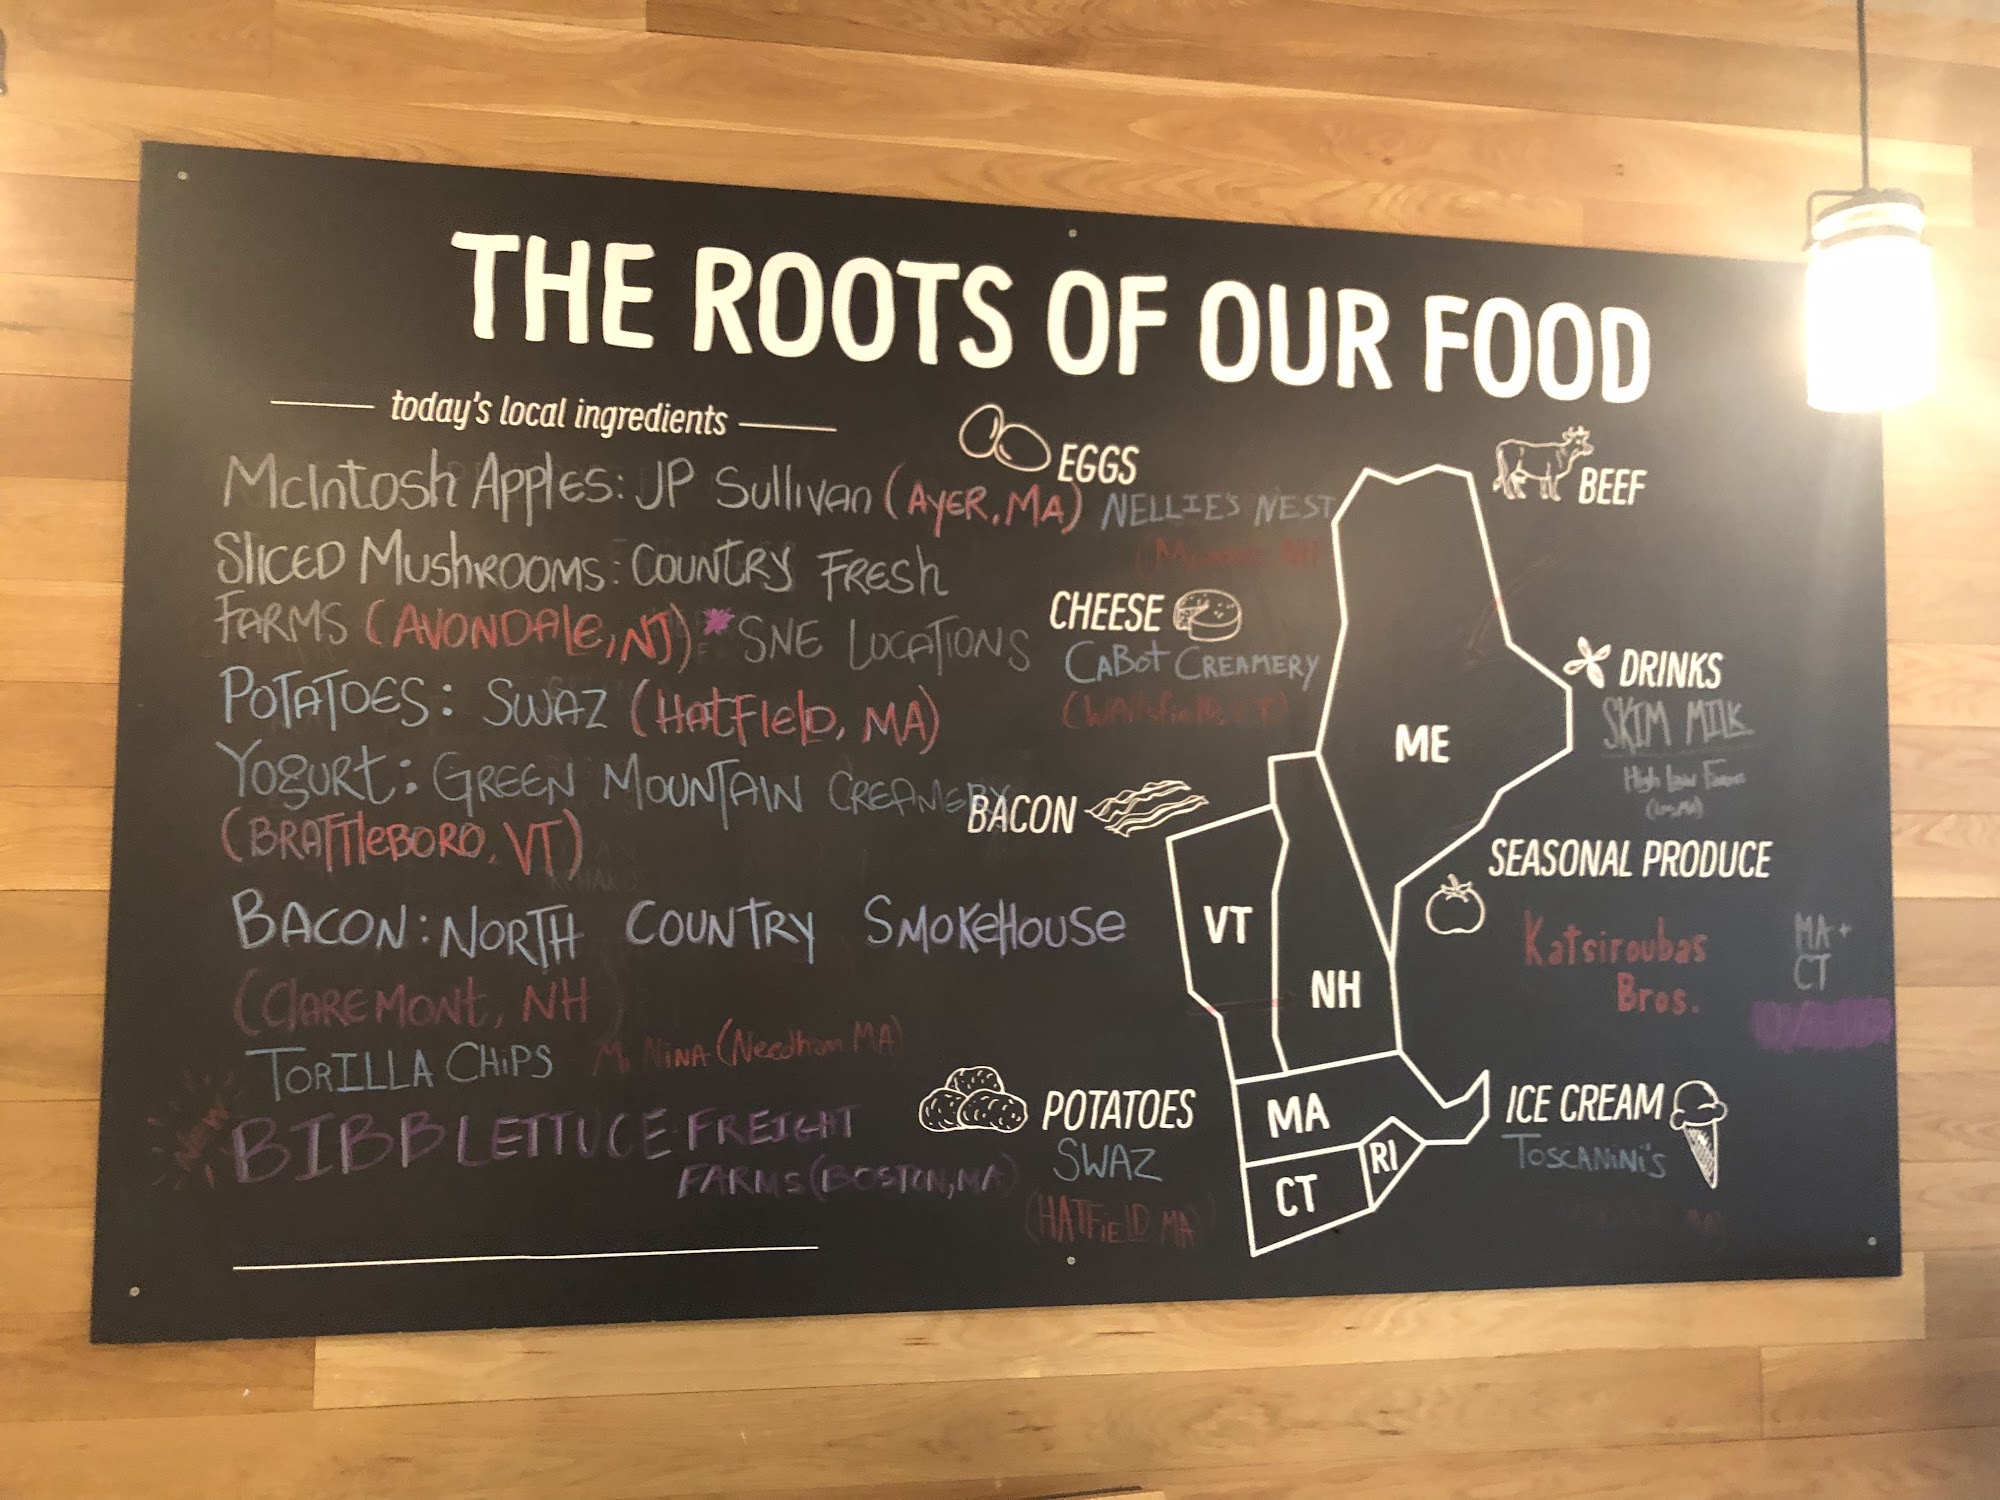 THE ROOTS OF OUR FOOD
today's local ingredients
McIntosh Apples: JP Sullivan (AYER, MA)
Sliced Mushrooms: Country Fresh
Farms (Avondale, NJ) * SNE Locations
Potatoes: Swaz (Hatfield, MA)
Yogurt: Green Mountain Creamery
(Brattleboro, VT)
Bacon: North Country Smokehouse
(Claremont, NH)
Torilla Chips Mi Nina (Needham MA)
NEW
BIBB LETTUCE FREIGHT
FARMS (BOSTON, MA)
EGGS
NELLIE'S NEST
CHEESE
CABOT CREAMERY
(Waitsfield, VT)
BACON
POTATOES
SWAZ
(HATFIELD MA)
BEEF
DRINKS
SKIM MILK
High Lawn Farm
SEASONAL PRODUCE
Katsiroubas
Bros.
MA +
CT
ICE CREAM
TOSCANINI'S
ME
VT
NH
MA
CT
RI